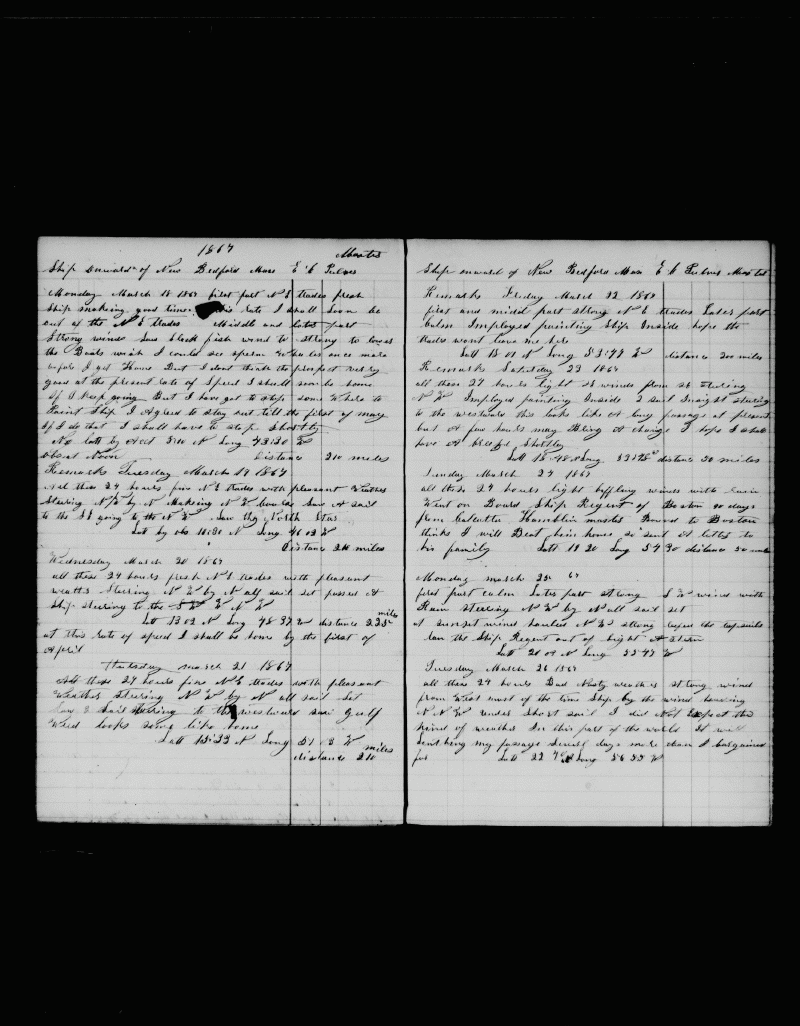 1867
Ship Onward of New Bedford Mass E C Pulver Master
Monday March 18 1867 first part N E trades fresh
Ship making good time this rate I shall soon be
out of the N E trades Middle and later part
Strong winds Saw black fish wind to strong to lower
the Boats wish I could see sperm whales once more
before I get Home But I dont think the prospect very
good at the present rate of Speed I shall soon be home
if I keep going But I have got to stop some where to
Paint Ship I Agreed to stay out till the first of may
If I do that I shall have to stop Shortly
No latt by Acct N Long 43:30 W
obs at Noon Distance 210 miles
Remarks Tuesday March 19 1867
All these 24 hours fine N E trades with pleasant Weather
Steering N W by N Making N W Course Saw A sail
to the going to the N W Saw the North Star
Latt by obs N Long 46 02 W
Distance miles
Wednesday March 20 1867
all these 24 hours fresh N E trades with pleasant
weather Steering N W by N all sail set passed A
Ship steering to the
Latt 13 02 N Long 48 37 W distance 225 miles
at this rate of speed I shall be home by the first of
April
Thursday march 21 1867
All these 24 hours fine N E trades with pleasant
Weather Steering N W by N all sail Set
Saw A Sail Steering to the westward saw gulf
Weed looks some like home
Latt N Long 51 03 W
distance 210 miles
Ship onward of New Bedford Mass E C Pulver Master
Remarks Friday March 22 1867
first and midd part strong N E trades Later part
Calm Imployed painting Ship Inside hope the
trades wont leave me here
Latt N Long 53:47 W distance 200 miles
Remarks Saturday 23 1867
all these 24 hours light winds from Steering
N W Imployed painting Inside 2 sail Insight steering
to the westward this looks like A long passage at present
but A few hours may Bring A change I hope I shall
have A breeze Shortly
Latt 18:48 N Long distance 50 miles
Sunday March 24 1867
all these 24 hours light baffling winds with
Went on Board Ship Regent of Boston 90 days
from Calcutta Hamblin master Bound to Boston
thinks I will Beat him home so sent A letter to
his family Latt 19 20 Long 54 30 distance 50 miles
Monday march 25 67
first part calm Later part strong S W wind with
Rain steering N W by N all sail set
at sunset wind hauled N W strong topsails
law the Ship Regent out of sight A Stern
Latt N Long 55 47 W
Tuesday March 26 1867
all these 24 hours Bad Nasty weather strong wind
from West most of the time Ship by the wind heading
N N W under Short sail I did Not Expect this
kind of weather In this part of the world It will
lenthing my passage several days more than I bargained
for Latt 22 N Long 56 55 W